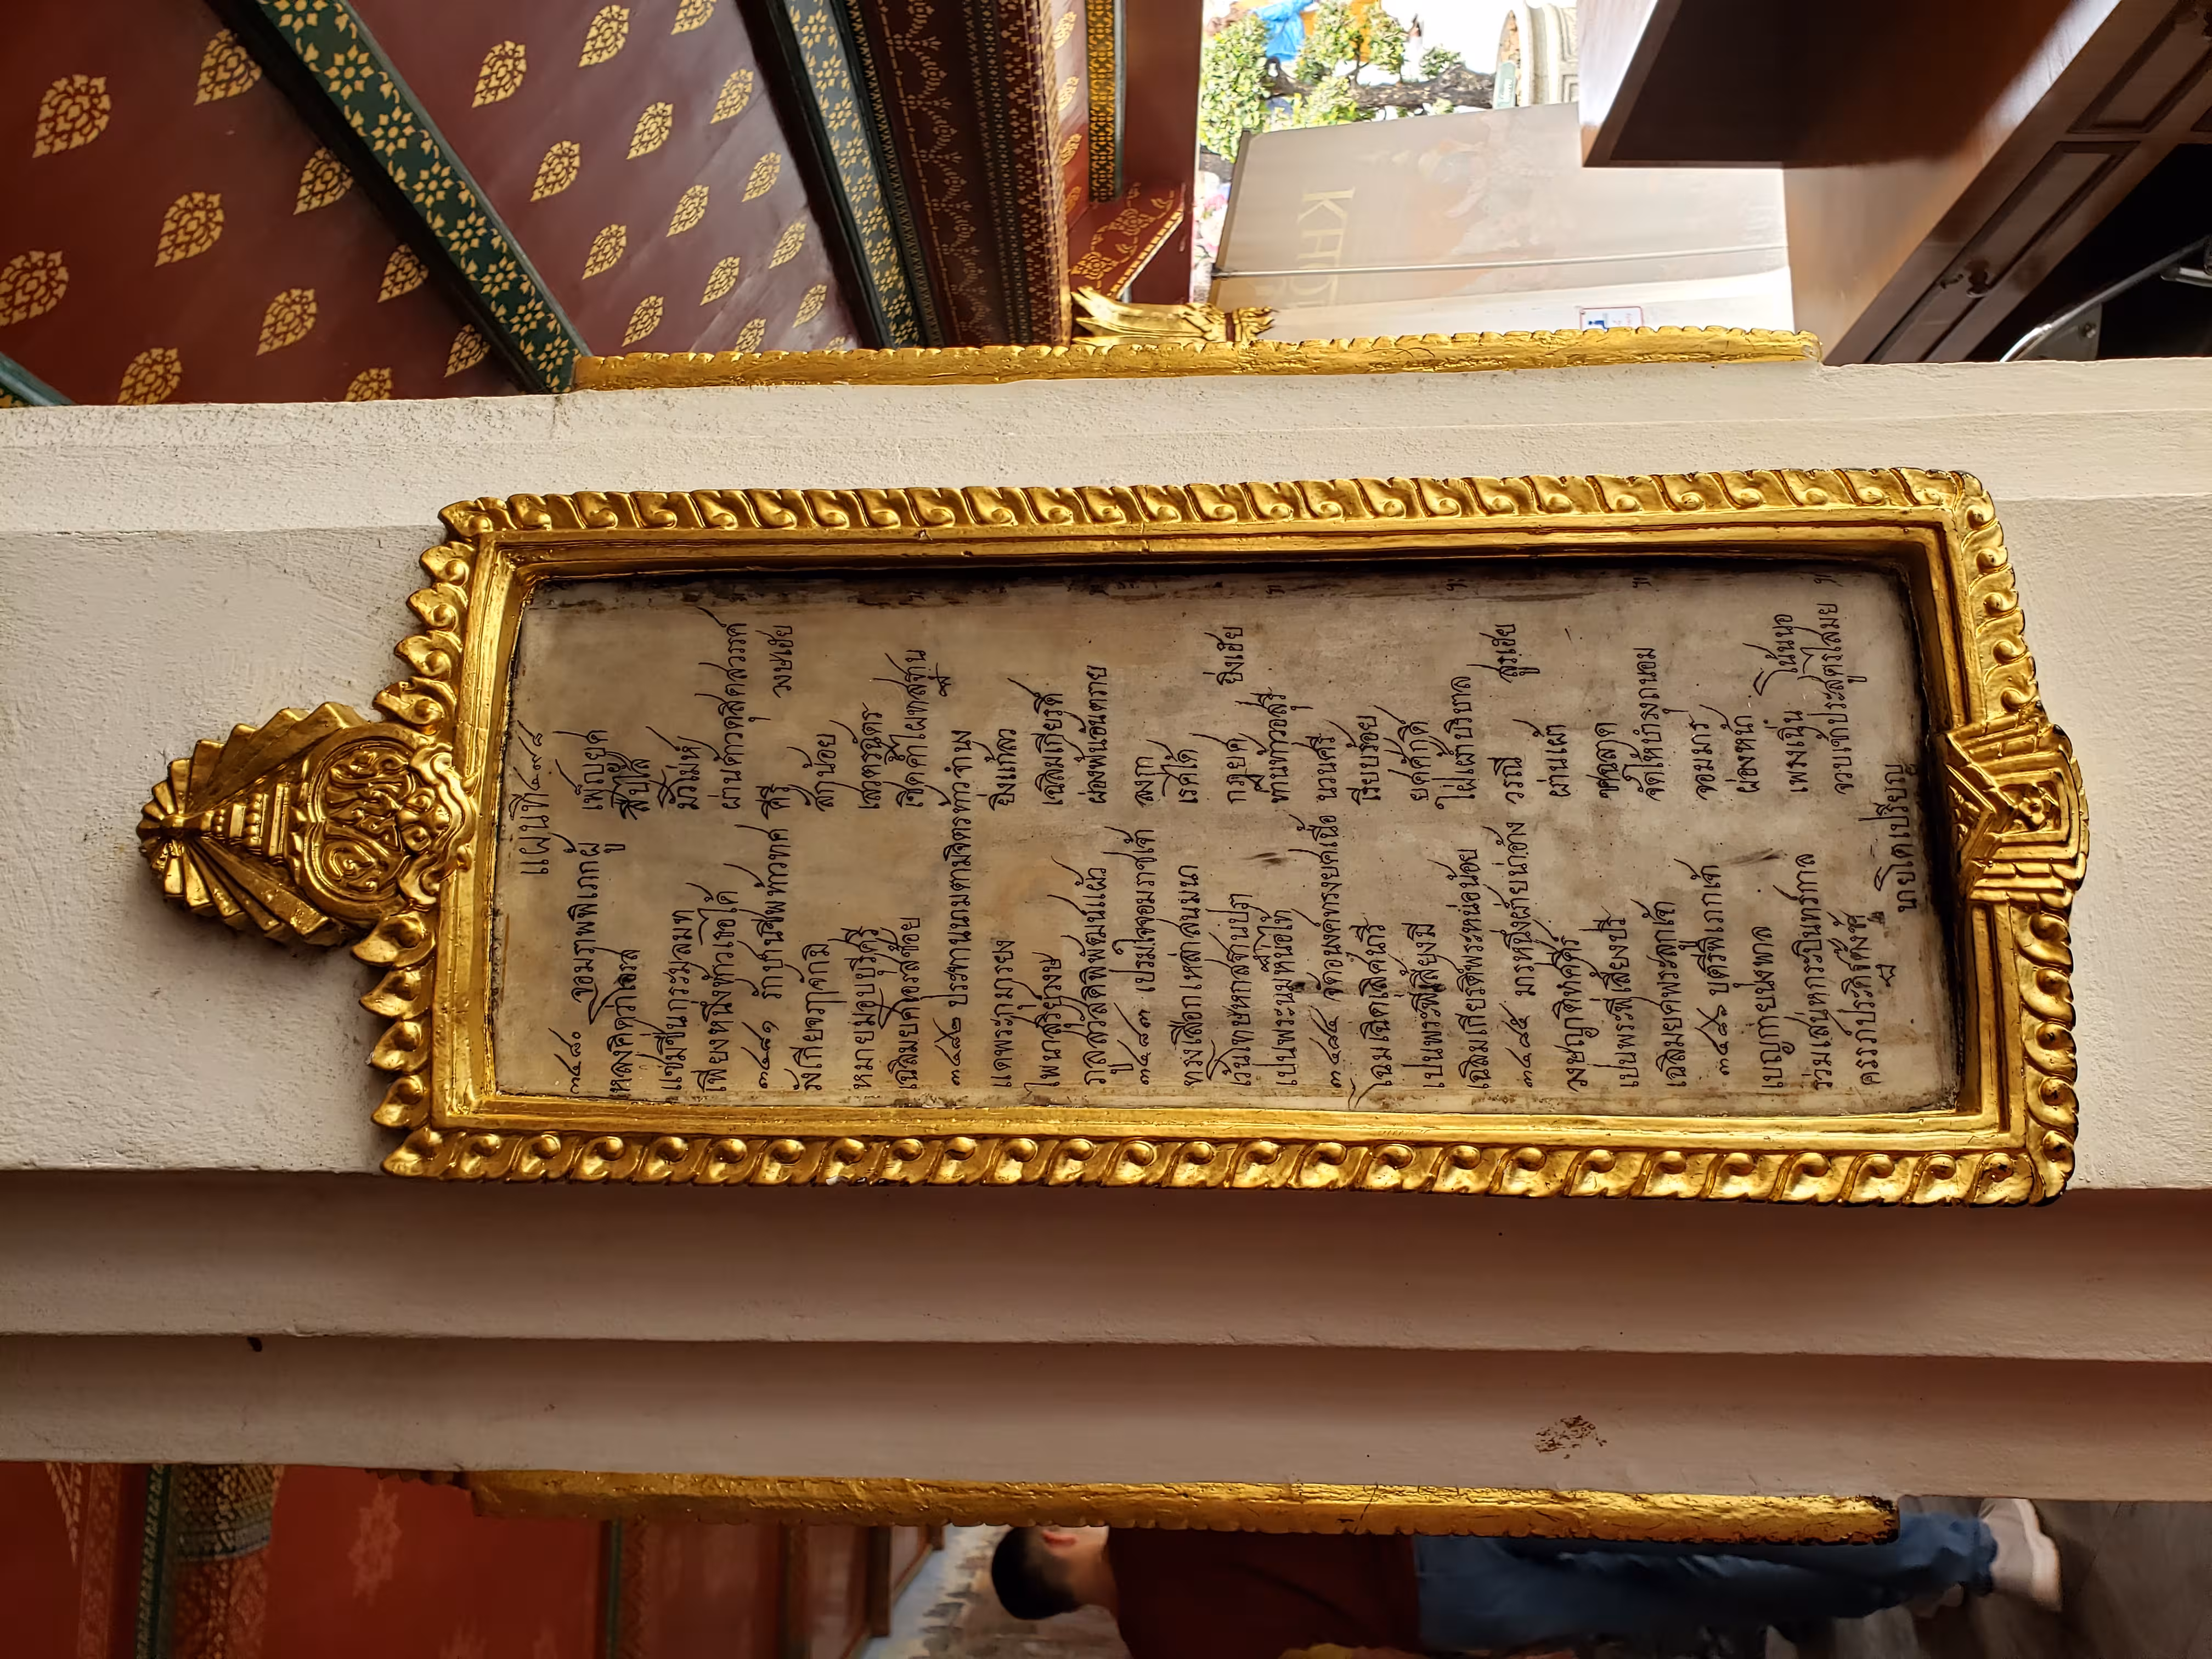 แผ่นที่ ๔๙๘
๓๔๘๐ จอมราพพิเภกผู้ เพ็ญยศ
หลงคิดว่าโอรส สืบไส้
แช่มชื่นกระมลมท มัวม่ห์
เพียงหนึ่งท้าวเธอได้ ผ่านด้าวดุสิดสวรรค์
๓๔๘๑ ชีพท้าวทศ คีรี วงษเฮย
วังเกียจ จักมี สักน้อย
หมายมอบบุรีศรี เสวตรฉัตร
เฉลิมยศโอรสช้อย เชิดค้ำไผทสถาน
๓๔๘๒ ประทานนามตามจิตรท้าว จำนง
แดพระกุมารยง ยิ่งแก้ลว
ไพนาสุริยวงษ เฉลิมเกียรติ
กูลสวัสดิพิพัฒน์แผ้ว ผ่องพ้นอันตราย
๓๔๘๓ เปรมใจจอมราชเจ้า ลงกา
ทรงเลือกเหล่าสนมนา เรศได้
เว้นโทษหกสถานปรา กฎยศ ยิ่งเฮย
เปนพระนมหน่อไท้ ท้านท้าวอสุรี
๓๔๘๔ จัดอนงค์ทรงยศเนื้อ นวนศรี
โฉมเฉิดเลิศนารี เรียบร้อย
เปนพระพี่เลี้ยงมี ยศศักดิ์
เฉลิมเกียรติพระหน่อน้อย ใฝ่เฝ้าบริบาล
๓๔๘๕ มารหนึ่งฝ่ายน่าอ้าง วรณี สูรเฮย
วงษญาติทศคิรี ผ่านเผ้า
เปนพระพี่เลี้ยงปรี ชฉลาด
เฉลิมยศพระลูกเจ้า จัดให้บำรุงถนอม
๓๔๘๖ บุตรีพิเภกเจ้า จอมมาร
เบญกายนุ่งพาล ผ่องหน้า
ร่วมเสน่หกระบินทร์กาล เพรงเนิ่น โน้นนอ
ครรภ์ประดิษฐ์ตั้งช้า จวบเจ้าประสูตรไสมย
นายโตเปรียญ